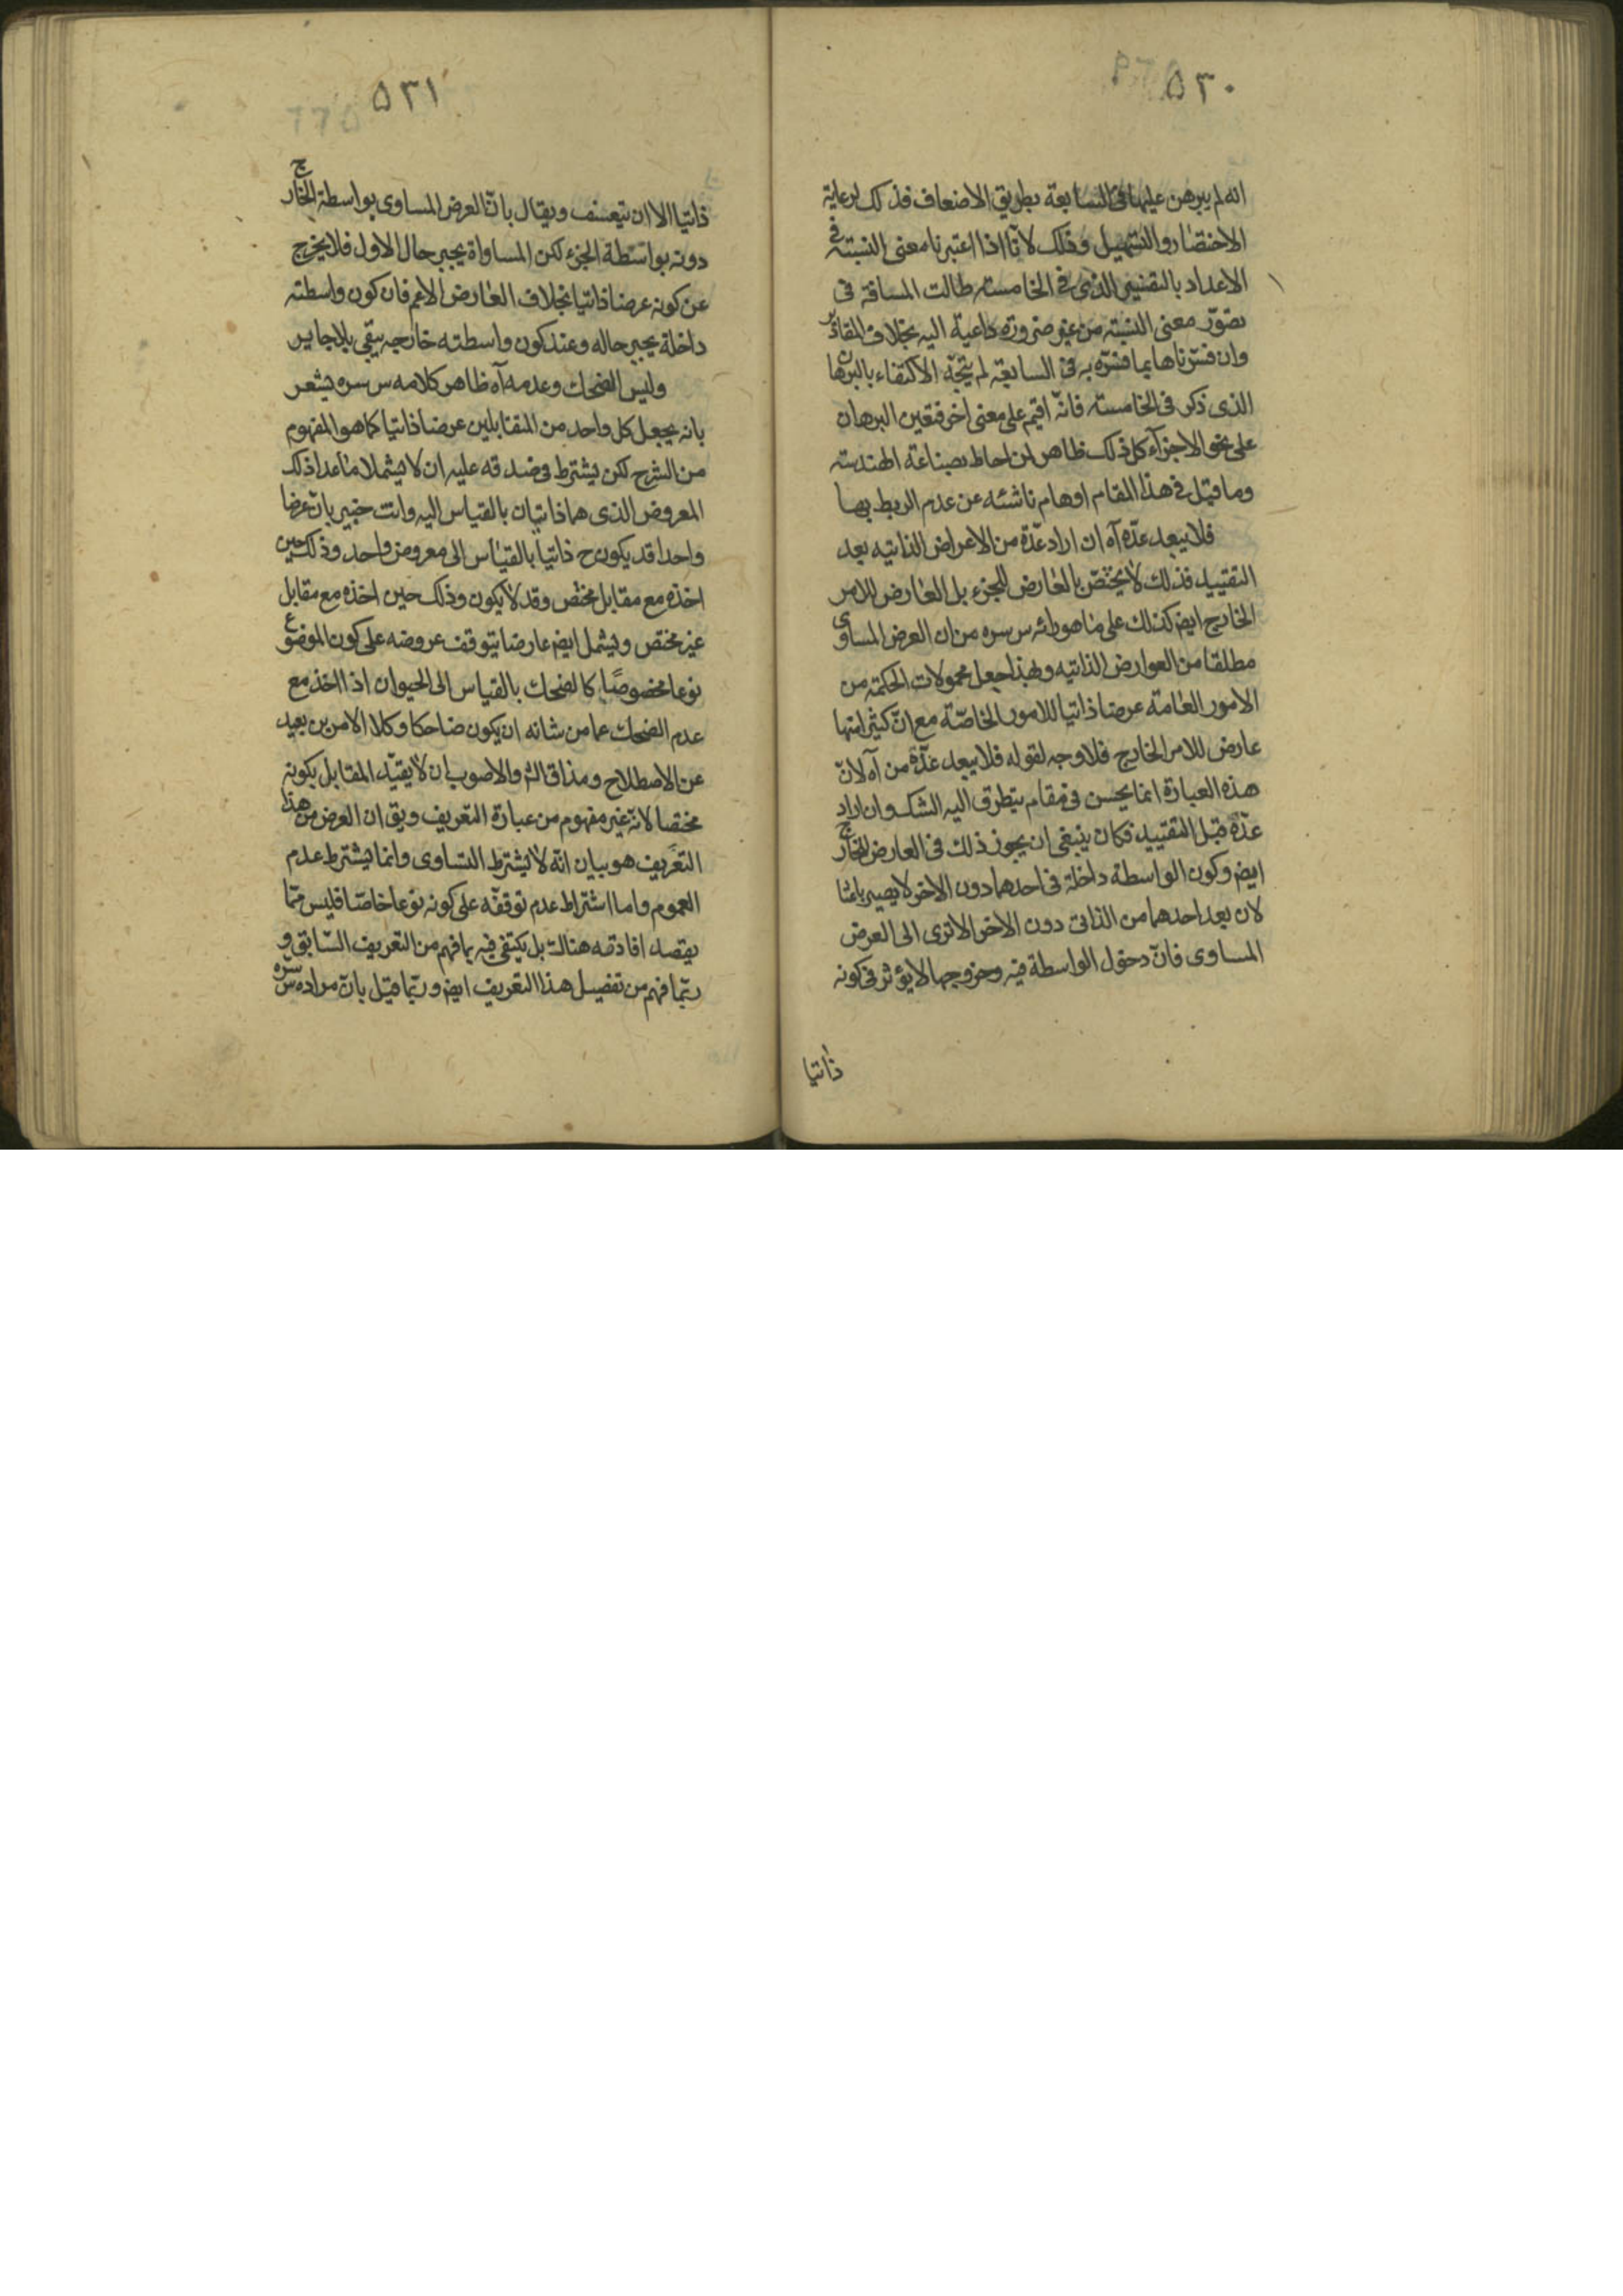 ٥٣٠
انه لم يبرهن عليها فى السابعة بطريق الاضعاف فذلك لرعاية
الاختصار والتسهيل وذلك لانا اذا اعتبرنا معنى النسبة فى
الاعداد بالتفسير الذى فى الخامسة طالت المسافة فى
تصوّر معنى النسبة من غير ضرورة داعية اليه بخلاف المقادير
وان فسرناها بما فسّره به فى السابعة لم يتجه الاكتفاء بالبرهان
الذى ذكر فى الخامسة فانّه اقيم على معنى اخر فتعين البرهان
على نحو الاجزآء كل ذلك ظاهر لمن احاط بصناعة الهندسة
وما قيل فى هذا المقام اوهام ناشئه عن عدم الربط بها
فلا يبعد عدّه آه ان اراد عدّة من الاعراض الذاتيه بعد
التقييد فذلك لا يختصّ بالعارض للجزء بل العارض للامر
الخارج ايض كذلك على ما هو رائه س سره من ان العرض المساوى
مطلقا من العوارض الذاتيه ولهذا جعل محمولات الحكمة من
الامور العامة عرضا ذاتيا للامور الخاصّة مع انّ كثيرا منها
عارض للامر الخارج فلا وجه لقوله فلا يبعد عدّه من آه لانّ
هذه العبارة انما يحسن فى مقام يتطرق اليه الشك وان اراد
عدّه قبل التقييد فكان ينبغى ان يجوز ذلك فى العارض للخارج
ايض وكون الواسطة داخلة فى احدهما دون الاخر لا يصير باعثا
لان يعد احدهما من الذاتى دون الاخر الا ترى الى العرض
المساوى فانّ دخول الواسطة فيه وخروجها لا يؤثر فى كونه
ذاتيا
٥٣١
ذاتيا الا ان يتعسف ويقال بانّ العرض المساوى بواسطة الخارج
دونه بواسطة الجزء لكن المساواة يجبر حال الاول فلا يخرج
عن كونه عرضا ذاتيا بخلاف العارض الاعم فان كون واسطته
داخلة يجبر حاله وعند كون واسطته خارجه يبقى بلا جابر
وليس الضحك وعدمه آه ظاهر كلامه س سره يشعر
بانه يجعل كل واحد من المتقابلين عرضا ذاتيا كما هو المفهوم
من الشرح لكن يشترط فى صدقه عليه ان لا يشملا ما عدا ذلك
المعروض الذى هما ذاتيان بالقياس اليه وانت خبير بانّ عرضا
واحدا قد يكون ح ذاتيا بالقياس الى معروض واحد وذلك حين
اخذه مع مقابل مختص وقد لا يكون وذلك حين اخذه مع مقابل
غير مختص ويشمل ايض عارضا يتوقف عروضه على كون الموضوع
نوعا مخصوصًا كالضحك بالقياس الى الحيوان اذا اخذ مع
عدم الضحك عما من شانه ان يكون ضاحكا وكلا الامرين بعيد
عن الاصطلاح ومذاق الش والاصوب ان لا يقيّد المقابل بكونه
مختصا لانه غير مفهوم من عبارة التعريف ويق ان الغرض من هذا
التعريف هو بيان انّه لا يشترط التساوى وانما يشترط عدم
العموم واما اشتراط عدم توقفه على كونه نوعا خاصّا فليس ممّا
يقصد افادته هناك بل يكتفى فيه بما فهم من التعريف السّابق و
ربّما فهم من تفصيل هذا التعريف ايض وربّما قيل بانّ مراده س سره